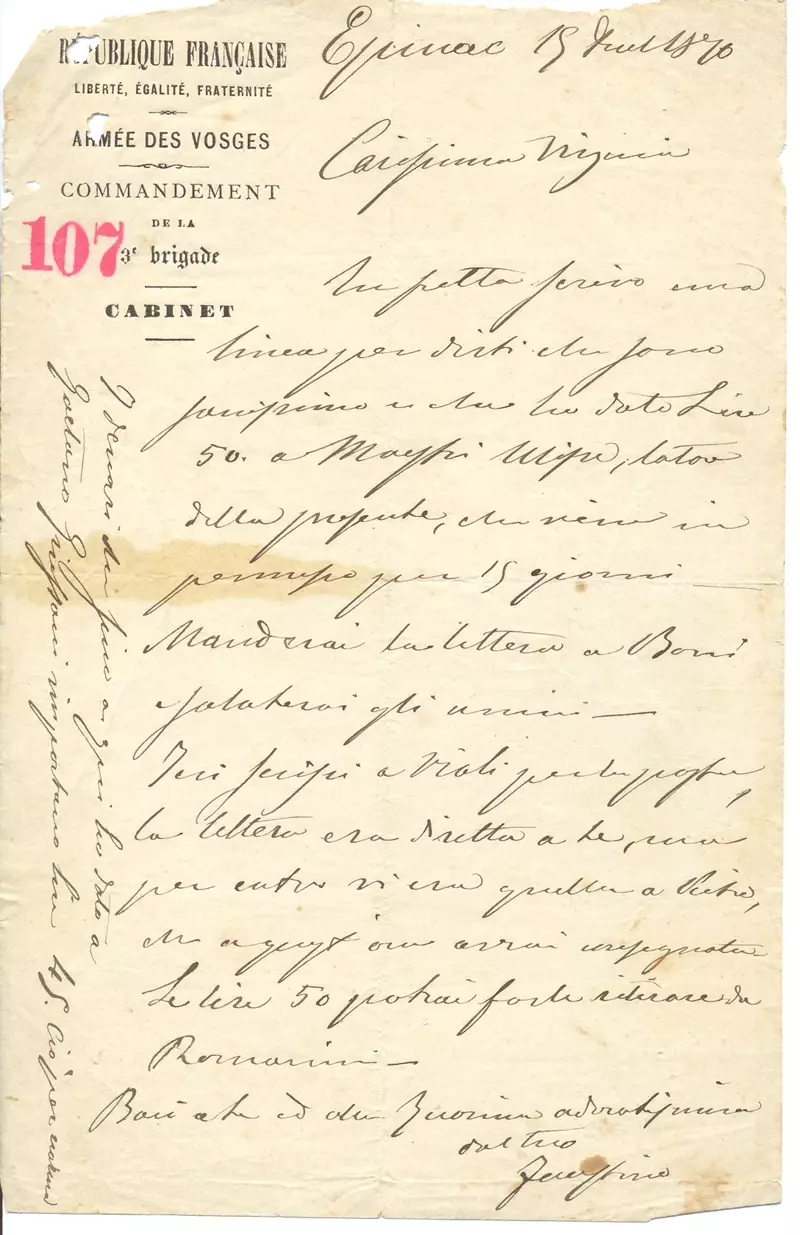 RÉPUBLIQUE FRANÇAISE
LIBERTÉ, ÉGALITÉ, FRATERNITÉ
ARMÉE DES VOSGES
COMMANDEMENT
DE LA
3e brigade
CABINET
107
Epinac 15 1870
Carissima Virginia
In fretta scrivo una
linea per dirti che sono
sanissimo e che ho dato Lire
50. a Maestri, latore
della presente, che viene in
permesso per 15 giorni
Manderai la lettera a
e saluterai gli amici
Ieri scrissi a Violi per la posta,
la lettera era diretta a te, ma
per entro vi era quella a Pietro,
che a quest'ora avrai consegnata
Le lire 50 potrai farle ritirare da
Romanini
Baci a te ed alla adoratissima
dal tuo
Faustino
I denari che fino a qui ho dato a
Gaetano Grifsoni importano Lire 45. Cioè per